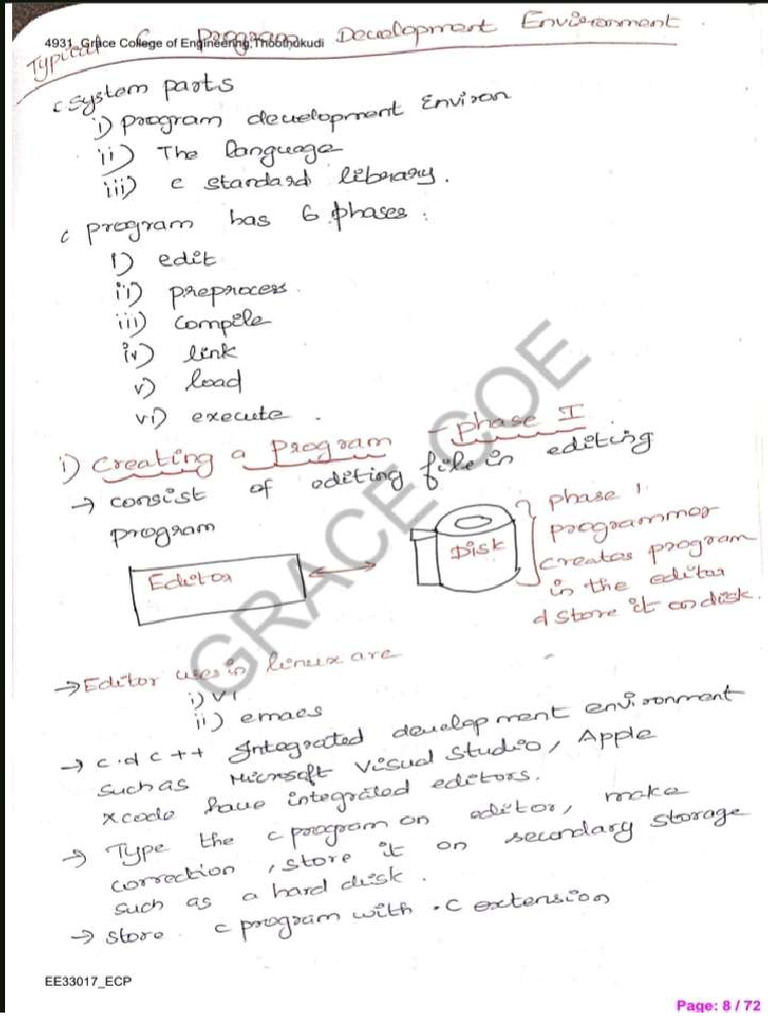 4931_Grace College of Engineering,Thoothukudi
Typical C Program Development Environment.
C system parts
i) program development Environ
ii) The language
iii) c standard library.
c program has 6 phases:
i) edit
ii) preprocess.
iii) compile
iv) link
v) load
vi) execute.
i) Creating a Program - phase I
→ consist of editing file in editing
program
Editor
Disk
phase 1
programmer
creates program
in the editor
& store it on disk.
→ Editor uses in linux are
i) vi
ii) emacs
→ c & c++ Integrated development environment
such as Microsoft Visual Studio, Apple
xcode have integrated editors.
→ Type the c program on editor, make
correction, store it on secondary storage
such as a hard disk.
→ store c program with .C extension
GRACE COE
EE33017_ECP
Page: 8 / 72